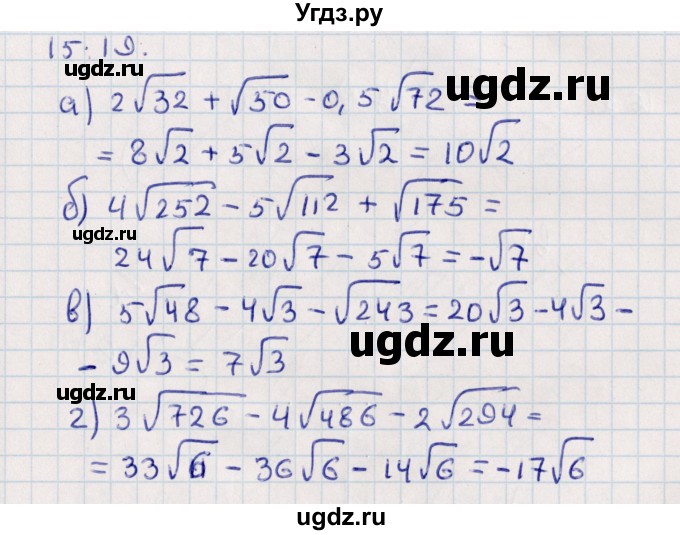 Угдз.ру
15.19.
ugdz.ru ugdz.ru
а) 2√32 + √50 - 0,5√72 =
= 8√2 + 5√2 - 3√2 = 10√2
б) 4√252 - 5√112 + √175 =
ugdz.ru
24√7 - 20√7 - 5√7 = -√7
в) 5√48 - 4√3 - √243 = 20√3 - 4√3 -
ugdz.ru
- 9√3 = 7√3
г) 3√726 - 4√486 - 2√294 =
ugdz.ru
= 33√6 - 36√6 - 14√6 = -17√6
ugdz.ru
ugdz.ru